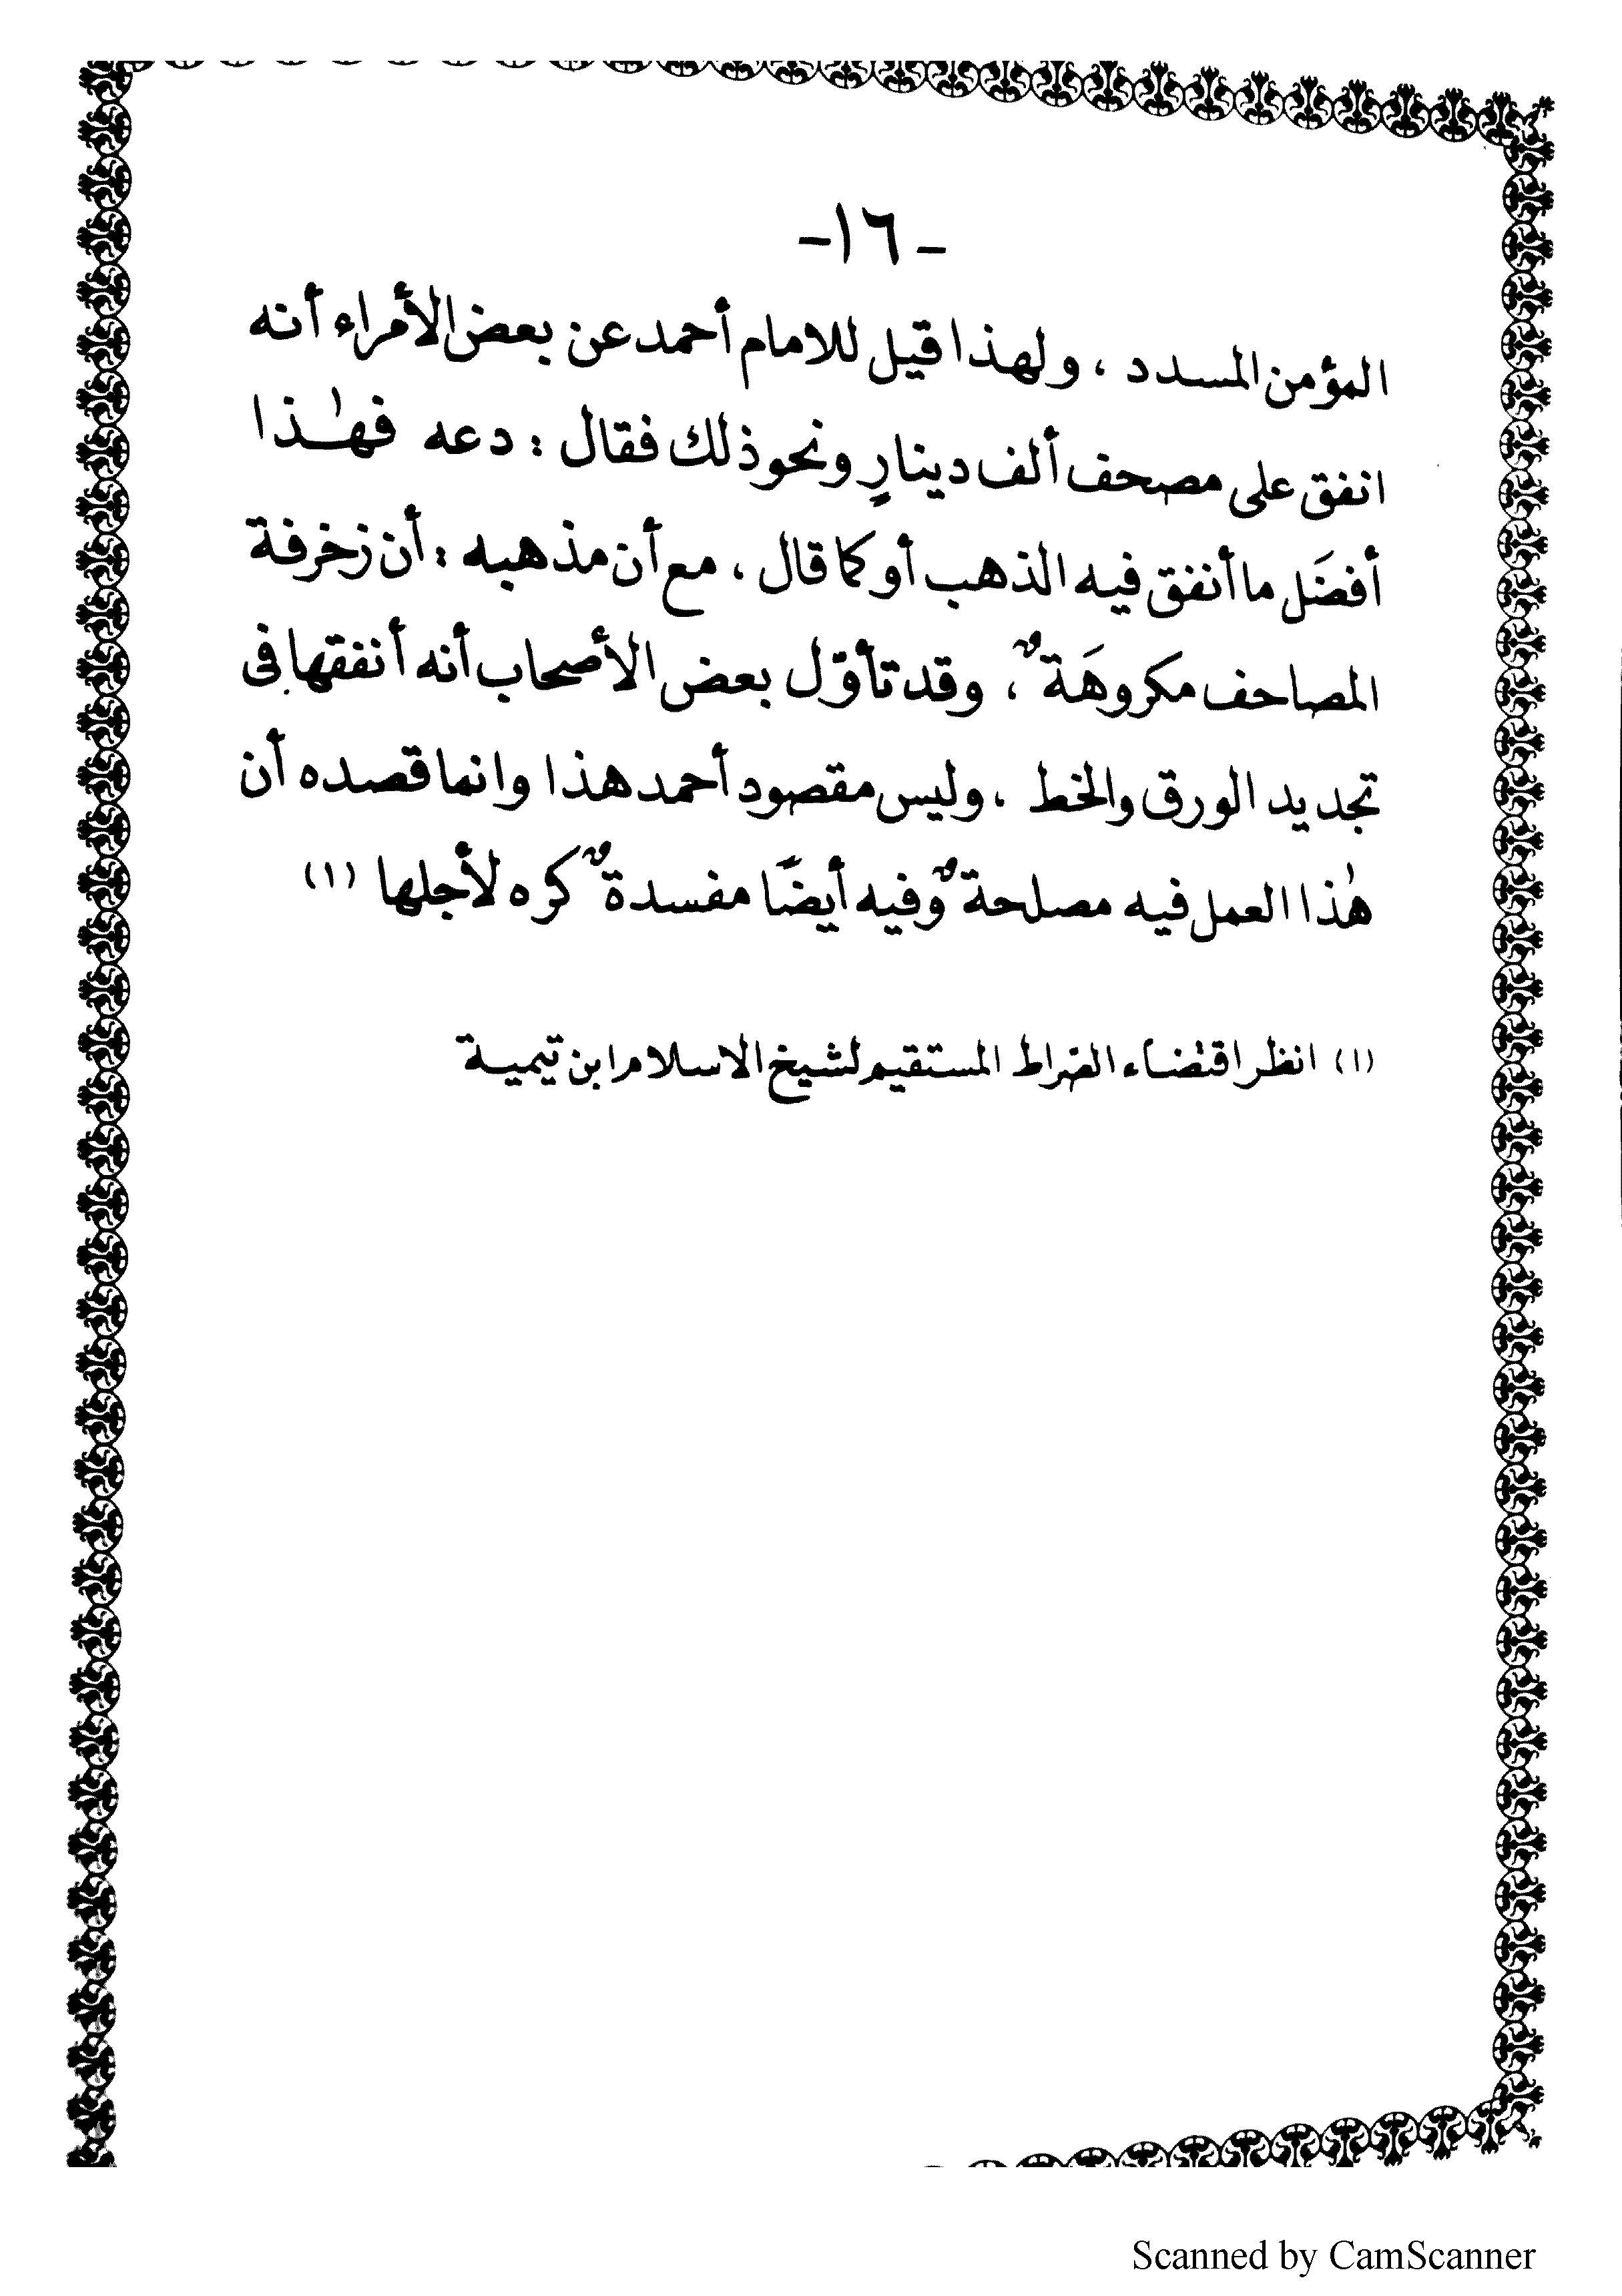 -١٦-
المؤمن المسدد ، ولهذا قيل للامام أحمد عن بعض الأمراء أنه
انفق على مصحف ألف دينارٍ ونحو ذلك فقال : دعه فهٰذا
أفضَل ما أنفق فيه الذهب أو كما قال ، مع أن مذهبه : أن زخرفة
المصاحف مكروهَةٌ ، وقد تأوّل بعض الأصحاب أنه أنفقها في
تجديد الورق والخط ، وليس مقصود أحمد هذا وانما قصده أن
هٰذا العمل فيه مصلحةٌ وفيه أيضًا مفسدةٌ كره لأجلها (١)
(١) انظر اقتضاء الصّراط المستقيم لشيخ الاسلام ابن تيمية
Scanned by CamScanner